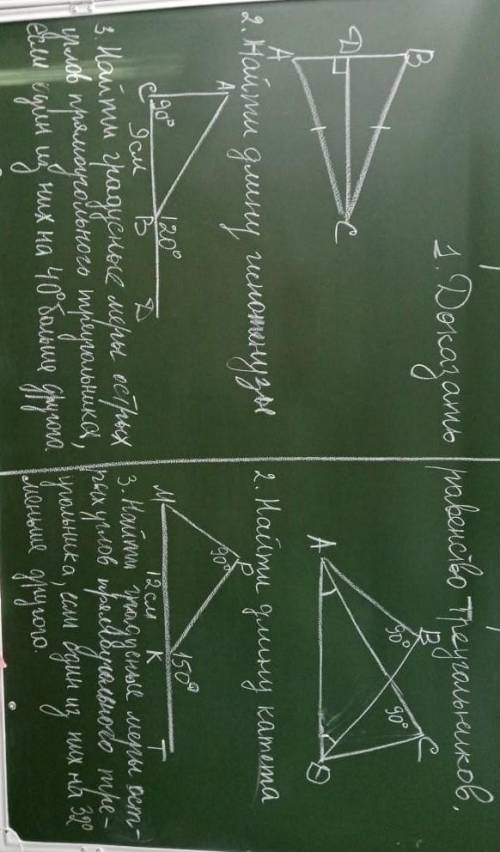 1. Доказать равенство треугольников.
B
D
A
C
2. Найти длину гипотенузы
A
C
90°
9см
B
120°
D
3. Найти градусные меры острых
углов прямоугольного треугольника,
если один из них на 40° больше другого.
A
B
90°
90°
C
D
2. Найти длину катета
P
90°
M
12см
K
150°
T
3. Найти градусные меры ост-
рых углов прямоугольного тре-
угольника, если один из них на 32°
меньше другого.